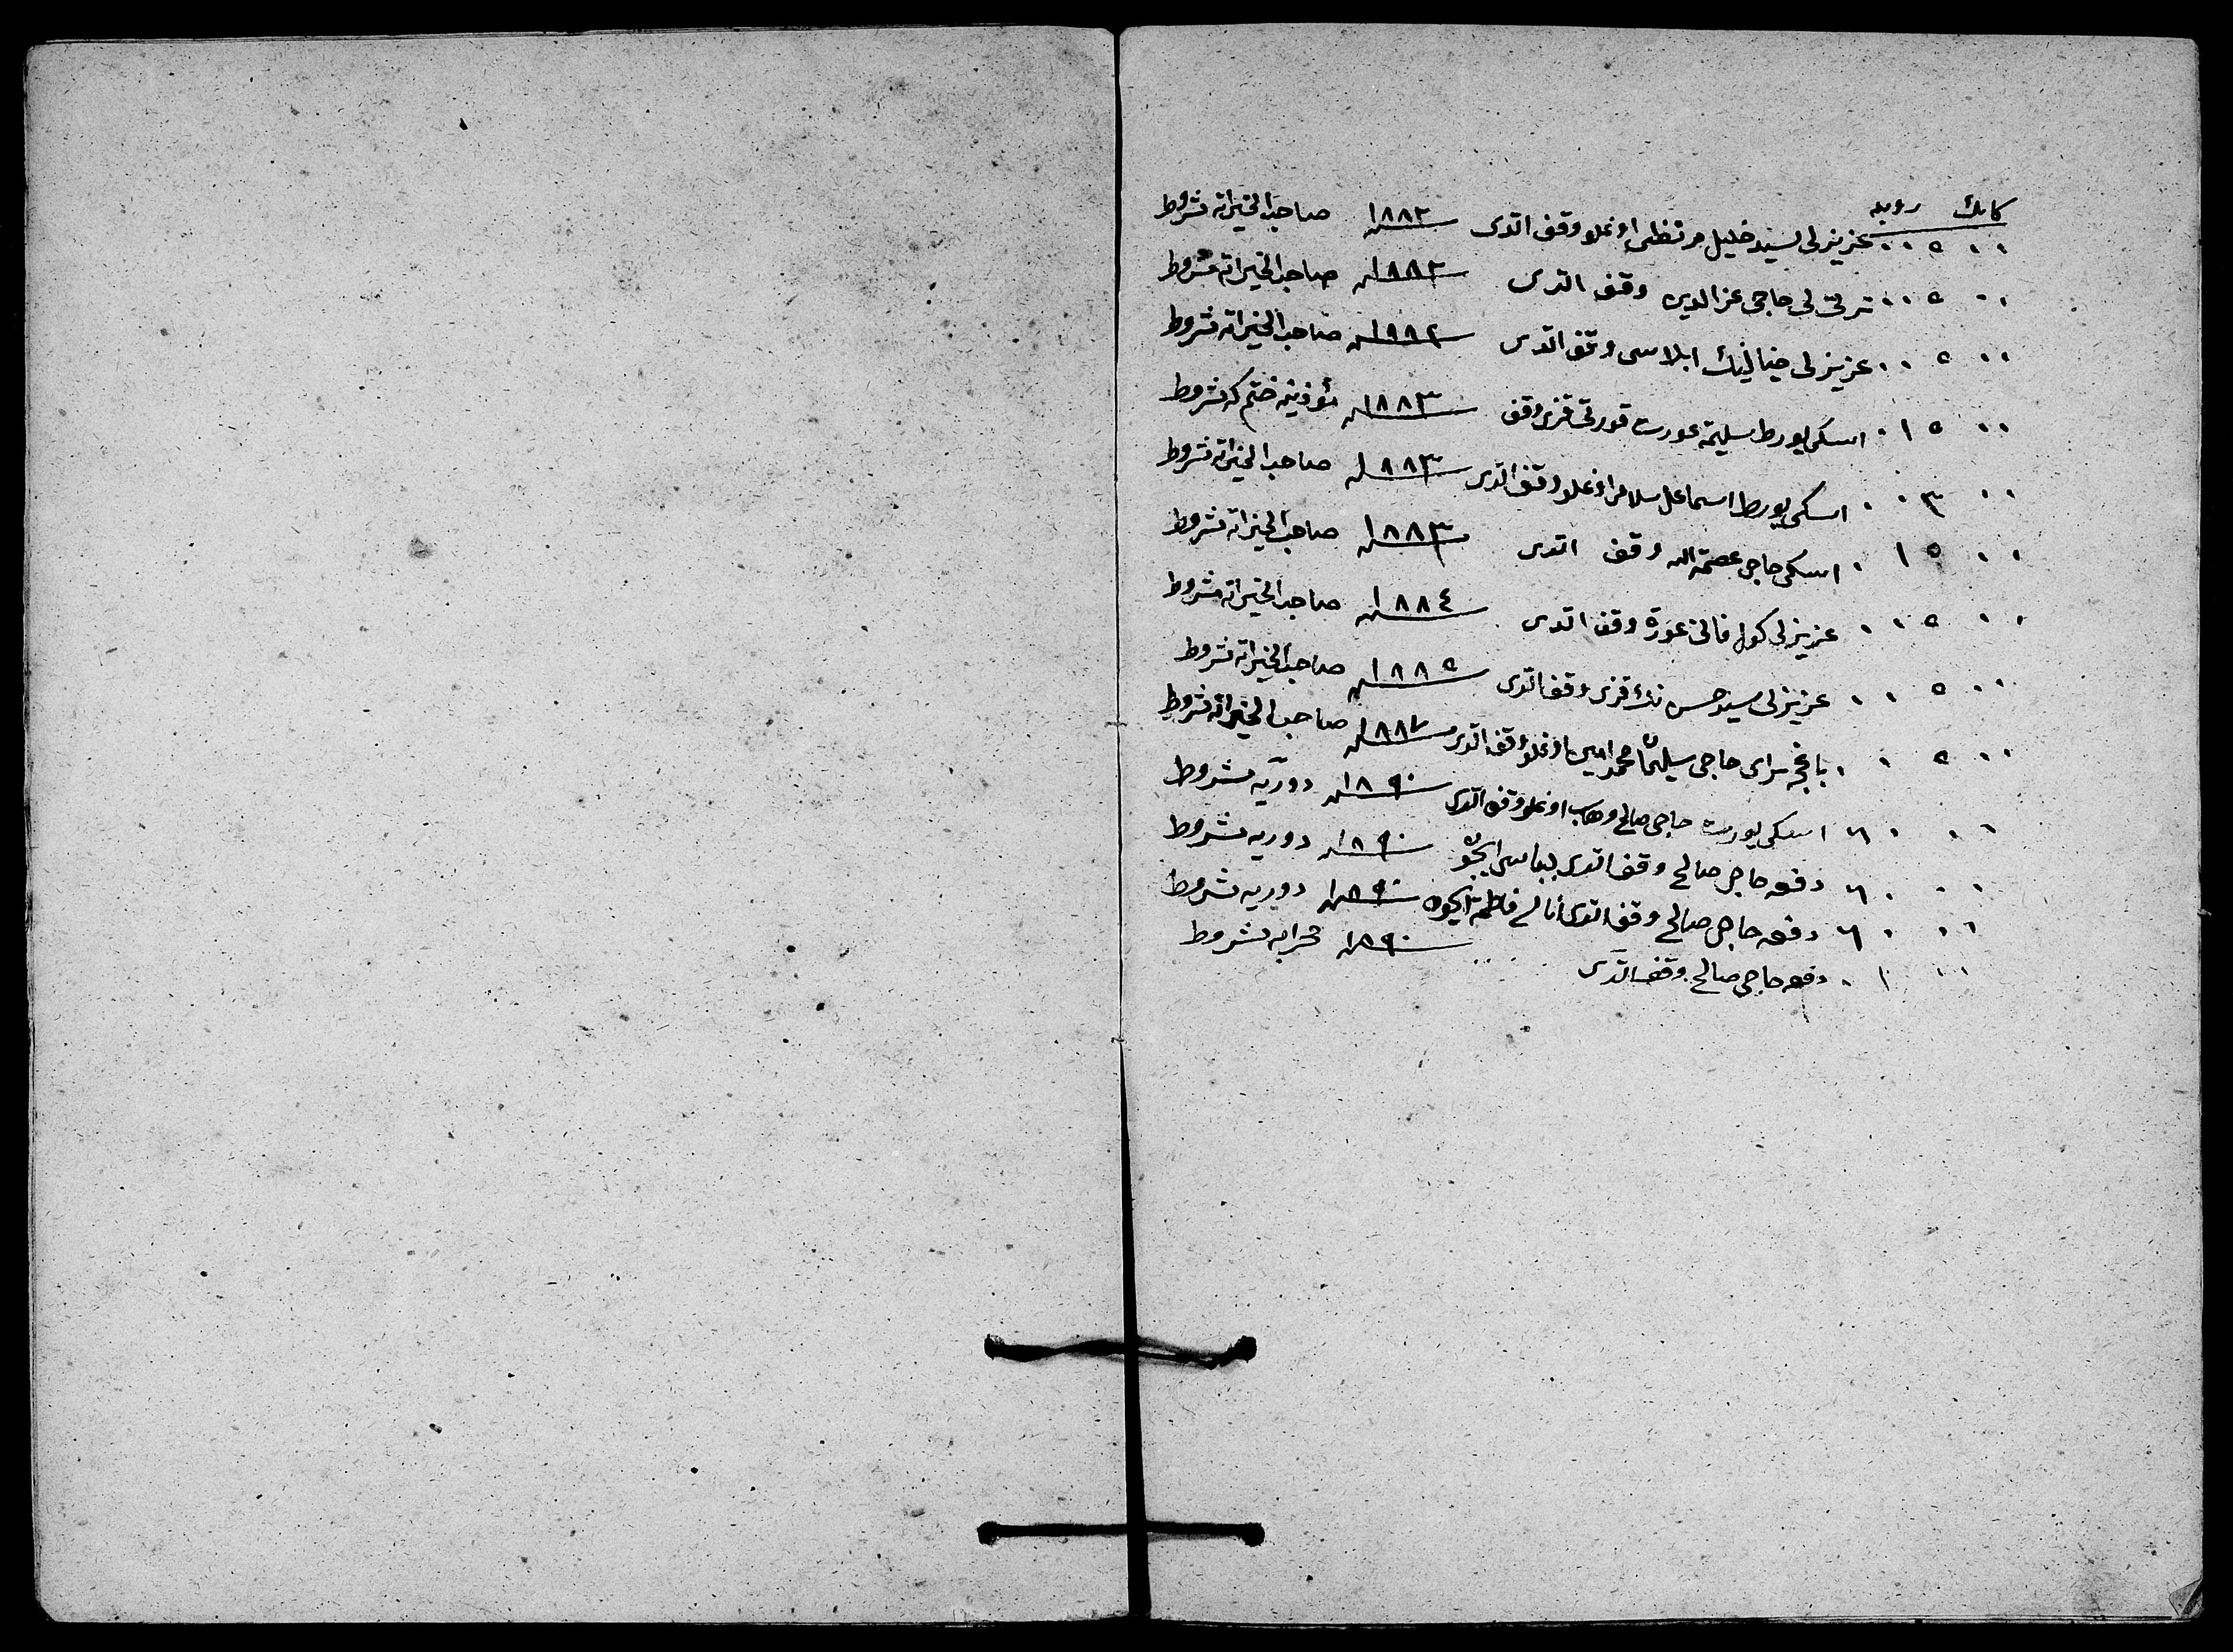 كاپك روبله
٠٠ ٥٠٠ عزيزلى سيد خليل مرتضى اوغلو وقف اتدى سنه ١٨٨٢ صاحب الخيراته مشروط
٠٠ ٥٠٠ حاجى عزالدين وقف اتدى سنه ١٨٨٢ صاحب الخيراته مشروط
٠٠ ٥٠٠ عزيزلى وقف اتدى سنه ١٨٨٢ صاحب الخيراته مشروط
٠٠ ١٥٠ اسكى يورط سليمه عورت قورتى قزى وقف سنه ١٨٨٣ ختم كه مشروط
٠٠ ٣٠٠ اسكى يورط اسماعل سلامر اوغلو وقف اتدى سنه ١٨٨٣ صاحب الخيراته مشروط
٠٠ ١٥٠ اسكى حاجى عصمة الله وقف اتدى سنه ١٨٨٣ صاحب الخيراته مشروط
٠٠ ٥٠٠ عزيزلى كول وقف اتدى سنه ١٨٨٤ صاحب الخيراته مشروط
٠٠ ٥٠٠ عزيزلى سيد حسن نك قزى وقف اتدى سنه ١٨٨٥ صاحب الخيراته مشروط
٠٠ ٥٠٠ باغچه سراى حاجى سليمان محمد امين اوغلو وقف اتدى سنه ١٨٨٧ صاحب الخيراته مشروط
٠٠ ٦٠ اسكى يورت حاجى صالح وهاب اوغلو وقف اتدى سنه ١٨٩٠ دوريه مشروط
٠٠ ٦٠ دفعه حاجى صالح وقف اتدى باباسى ايچون سنه ١٨٩٠ دوريه مشروط
٠٠ ٦٠ دفعه حاجى صالح وقف اتدى اناسى فاطمه ايچون سنه ١٨٩٠ دوريه مشروط
٠٠ ١٠ دفعه حاجى صالح وقف اتدى سنه ١٨٩٠ محرابه مشروط